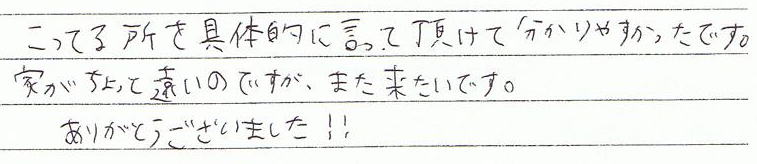 こってる所を具体的に言って頂けて分かりやすかったです。
家がちょっと遠いのですが、また来たいです。
ありがとうございました!!